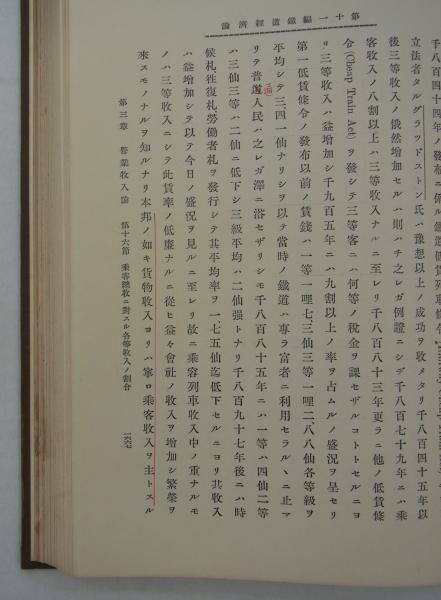 第十一編鐵道經濟論
千八百四十四年ノ發布ニ係ル鐵道低賃列車條令
立法者タルグラツドストン氏ハ豫想以上ノ成功ヲ收メタリ千八百四十五年以
後三等收入ノ俄然增加セルハ則ハチ之レガ例證ニシテ千八百七十九年ニハ乘
客收入ノ八割以上ハ三等收入ナルニ至レリ千八百八十三年更ラニ他ノ低賃條
令(Cheap Train Act)ヲ發シテ三等客ニハ何等ノ稅金ヲ課セザルコトトセルニヨ
リ三等收入ハ益增加シ千九百五年ニハ九割以上ノ率ヲ占ムルノ盛況ヲ呈セリ
第一低賃條令ノ發布以前ノ賃錢ハ一等一哩七、三仙三等一哩二、八八仙各等級ヲ
平均シテ三、四一仙ナリシヲ以テ當時ノ鐵道ハ專ラ富者ニ利用セラルヽニ止マ
リテ普通人民ハ之レガ澤ニ浴セザリシモ千八百八十五年ニハ一等ハ四仙二等
ハ三仙三等ハ二仙ニ低下シ三級平均ハ二仙强トナリ千八百九十七年後ニハ時
候札、徃復札、勞働者札ヲ發行シテ其平均率ヲ一、七五仙迄低下セルニヨリ其收入
ハ益增加シテ以テ今日ノ盛況ヲ見ルニ至レリ故ニ乘容列車收入中ノ重ナルモ
ノハ三等收入ニシテ此賃率ノ低廉ナルニ從ヒ益々會社ノ收入ヲ增加シ繁榮ヲ
來スモノナルヲ知ルナリ本邦ノ如キ貨物收入ヨリハ寧ロ乘客收入ヲ主トスル
第三章 營業收入論 第十六節 乘客總收ニ對スル各等收入ノ割合
一六六七